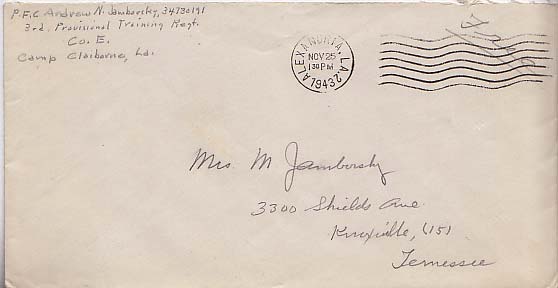 P.F.C. Andrew N. Jamborsky, 34730191
3rd. Provisional Training Regt.
Co. E.
Camp Claiborne, La.
ALEXANDRIA, LA.
NOV 25
1 30 PM
1943
Free
Mrs M Jamborsky
3300 Shields Ave.
Knoxville, (15)
Tennessee